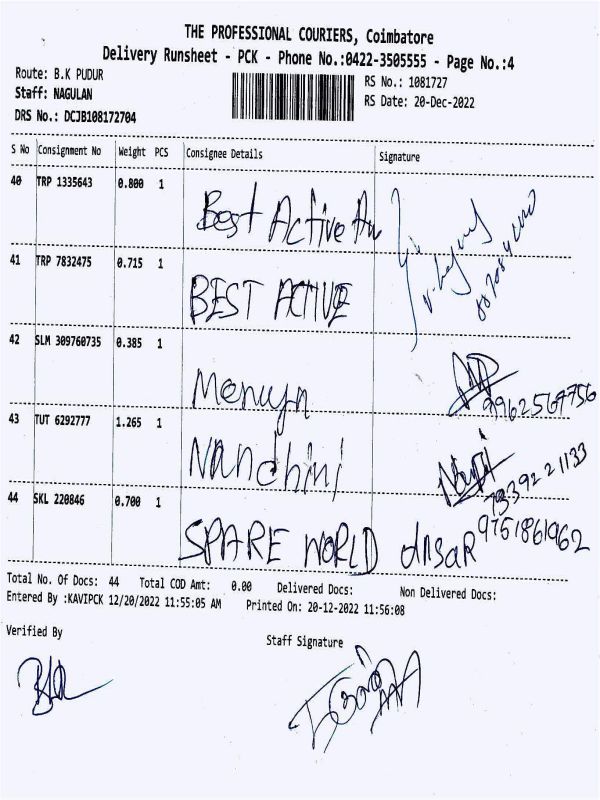 THE PROFESSIONAL COURIERS, Coimbatore
Delivery Runsheet - PCK - Phone No.:0422-3505555 - Page No.:4
Route: B.K PUDUR
RS No.: 1081727
Staff: NAGULAN
RS Date: 20-Dec-2022
DRS No.: DCJB108172704
S No Consignment No Weight PCS Consignee Details Signature
40 TRP 1335643 0.800 1 Best Active Au
41 TRP 7832475 0.715 1 BEST ACTIVE
42 SLM 309760735 0.385 1
9962567756
43 TUT 6292777 1.265 1 Nandhini
7339221133
44 SKL 220846 0.700 1 SPARE WORLD ansar 9751861962
Total No. Of Docs: 44 Total COD Amt: 0.00 Delivered Docs: Non Delivered Docs:
Entered By :KAVIPCK 12/20/2022 11:55:05 AM Printed On: 20-12-2022 11:56:08
Verified By Staff Signature